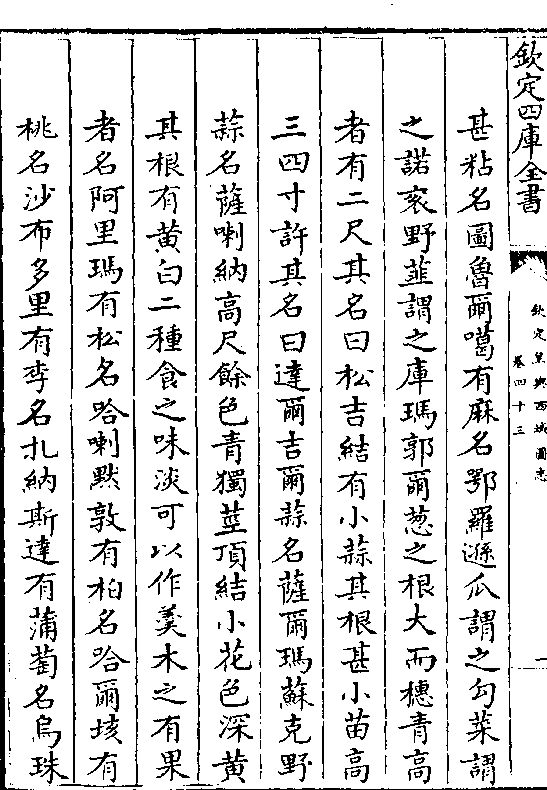 欽定四庫全書
欽定皇輿西域圖志
卷四十三
一
甚粘名圖魯爾噶有麻名鄂羅遜瓜謂之勾菜謂
之諾衮野韮謂之庫瑪郭爾葱之根大而穗青高
者有二尺其名曰松吉結有小蒜其根甚小苗高
三四寸許其名曰達爾吉爾蒜名薩爾瑪蘇克野
蒜名薩喇納高尺餘色青獨莖頂結小花色深黄
其根有黄白二種食之味淡可以作羮木之有果
者名阿里瑪有松名哈喇黙敦有柏名哈爾垓有
桃名沙布多里有李名扎納斯達有蒲萄名烏珠